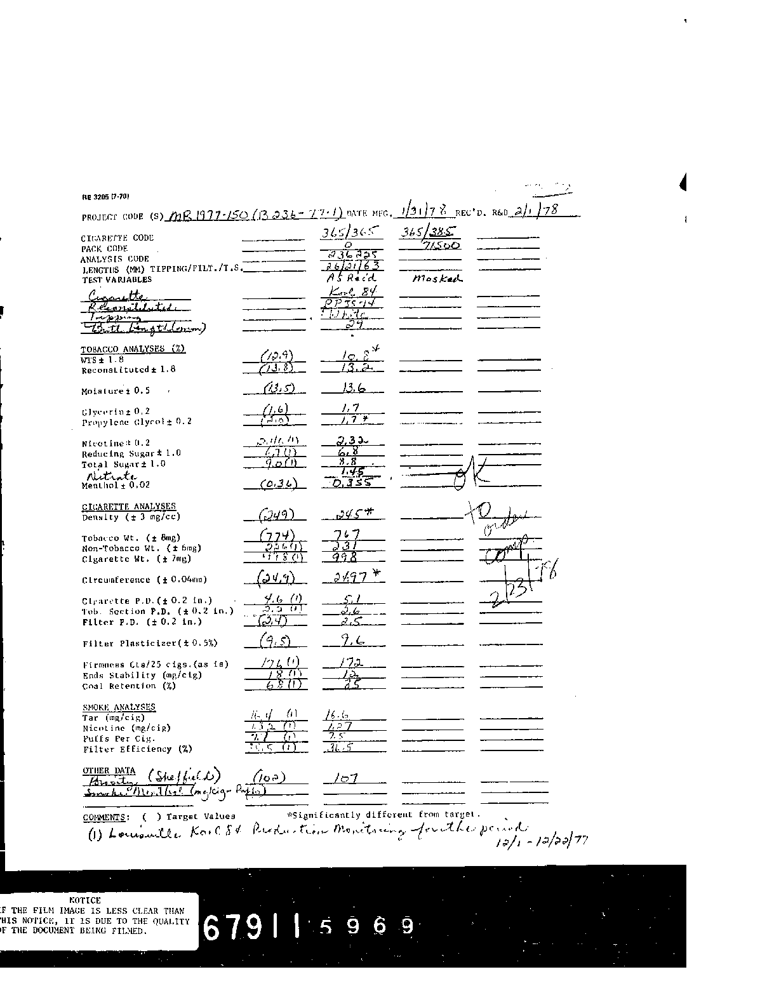 RE 3205 (7-70)
PROJECT CODE (S) MR 1977-150 (B 236-77-1) DATE MFG. 1/31/78 REC'D. R&D 2/1/78
CIGARETTE CODE 365/365 365/385
PACK CODE 0 71500
ANALYSIS CODE 236225
LENGTHS (MM) TIPPING/FILT./T.S. 26/21/63
TEST VARIABLES As Rec'd Masked
Cigarette Kool 84
Reconstituted PPJS-14
Tipping White
Butt Length (mm) 29
TOBACCO ANALYSES (%)
WTS ± 1.8 (12.9) 10.8*
Reconstituted ± 1.8 (13.8) 13.2
Moisture ± 0.5 (13.5) 13.6
Glycerin ± 0.2 (1.6) 1.7
Propylene Glycol ± 0.2 (2.0) 1.7*
Nicotine ± 0.2 2.32
Reducing Sugar ± 1.0 6.7(1) 6.8
Total Sugar ± 1.0 9.0(1) 8.8
Nitrate 1.45
Menthol ± 0.02 (0.36) 0.355
OK
CIGARETTE ANALYSES
Density (± 3 mg/cc) (249) 245*
to order
Tobacco Wt. (± 8mg) (774) 767
Non-Tobacco Wt. (± 6mg) 226(1) 231
comp.
Cigarette Wt. (± 7mg) 998
Circumference (± 0.04mm) (24.9) 24.97*
2/23/78
Cigarette P.D. (± 0.2 in.) 4.6 (1) 5.1
Tob. Section P.D. (± 0.2 in.) 2.2 (1) 2.6
Filter P.D. (± 0.2 in.) (2.4) 2.5
Filter Plasticizer (± 0.5%) (9.5) 9.6
Firmness Gts/25 cigs.(as is) 176 (1) 172
Ends Stability (mg/cig) 18 (1) 12
Coal Retention (%) 68 (1) 25
SMOKE ANALYSES
Tar (mg/cig) (1) 16.6
Nicotine (mg/cig) 1.32 (1) 1.27
Puffs Per Cig. 7.7 (1) 7.5
Filter Efficiency (%) (1) 36.5
OTHER DATA
Porosity (Sheffield) (102) 107
Smoke Menthol (mg/cig - Puffs)
COMMENTS: ( ) Target Values *Significantly different from target.
(1) Louisville Kool 84 Production Monitoring for the period
12/1 - 12/22/77
NOTICE
IF THE FILM IMAGE IS LESS CLEAR THAN
THIS NOTICE, IT IS DUE TO THE QUALITY
OF THE DOCUMENT BEING FILMED.
679115969